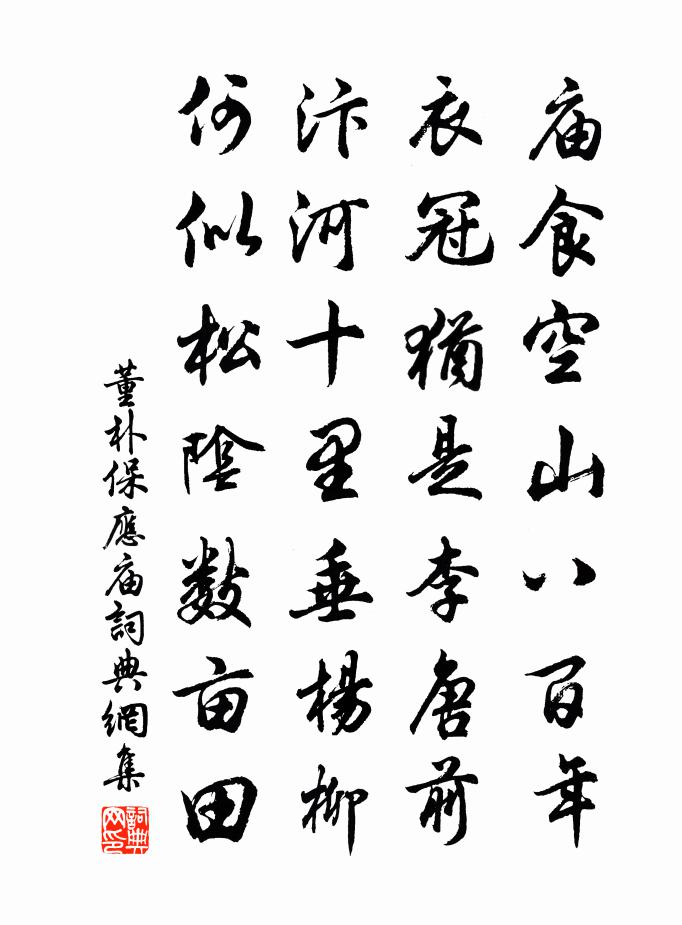 庙食空山八百年
衣冠猶是李唐前
汴河十里垂楊柳
何似松陰數亩田
董朴保應庙詞典網集
詞典网印